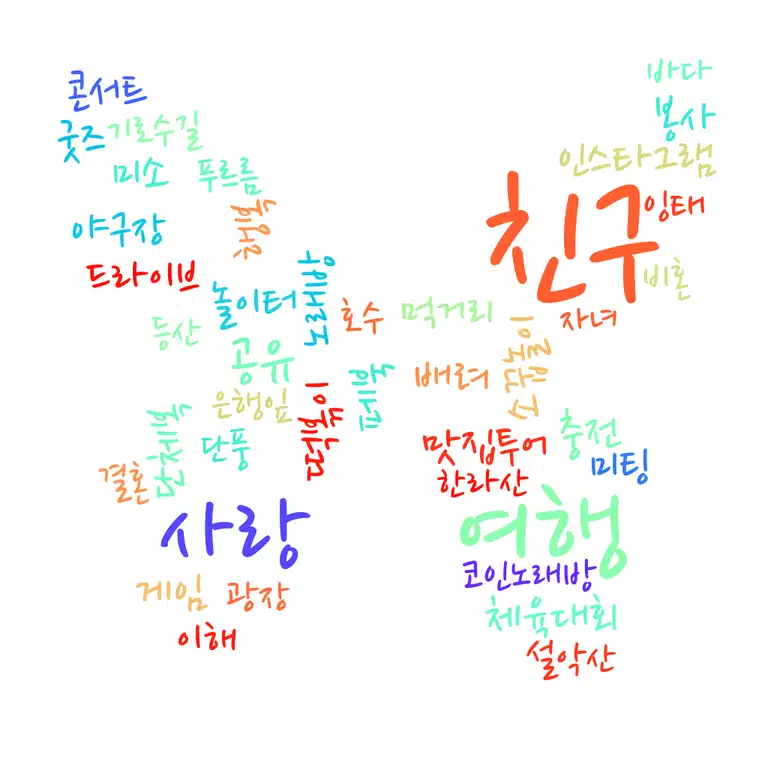 바다
콘서트
봉사
굿즈
기로수길
인스타그램
미소
푸르름
친구
잉태
야구장
드라이브
비혼
놀이터
노래방
호수
먹거리
자녀
등산
공유
배려
은행잎
단풍
맛집투어
충전
미팅
결혼
한라산
사랑
여행
코인노래방
게임
광장
체육대회
이해
설악산